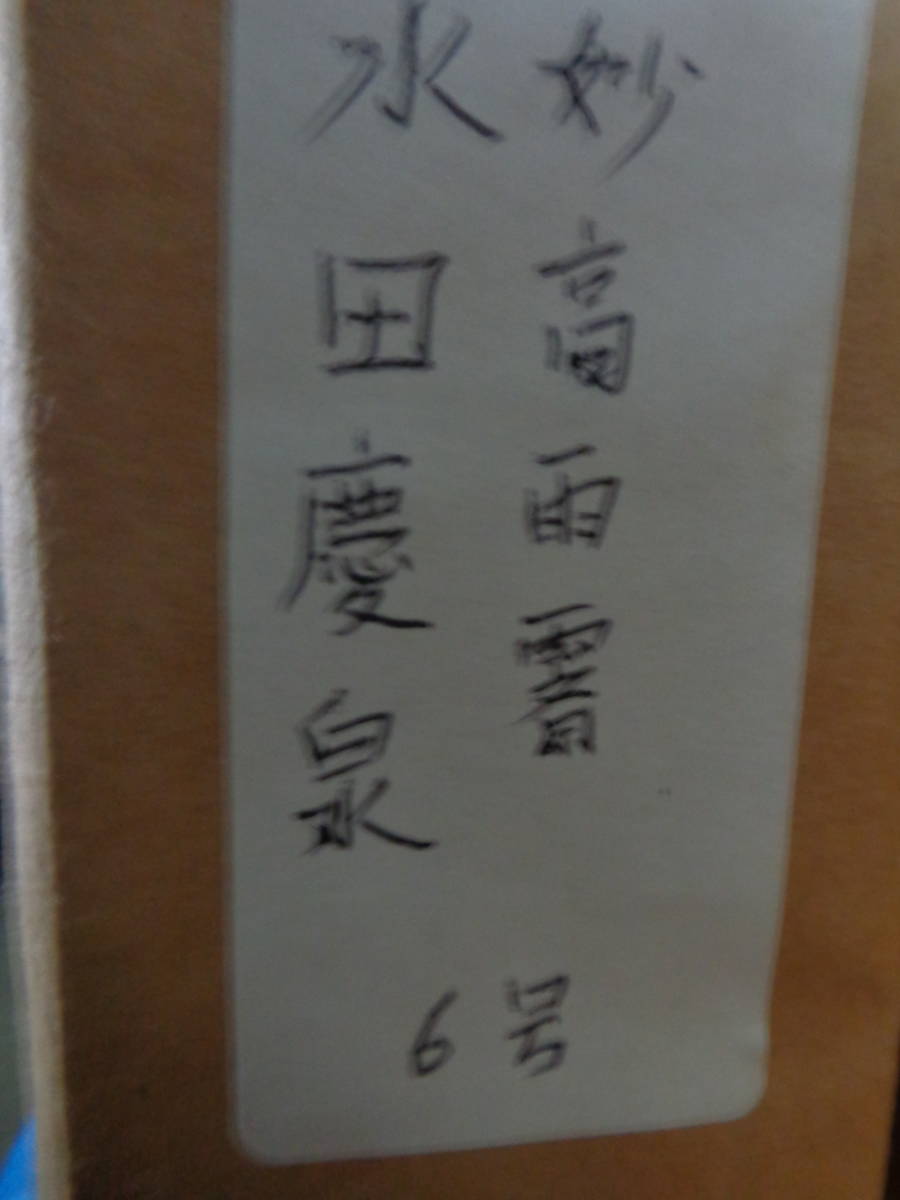 妙高雨霽
水田慶泉
6号